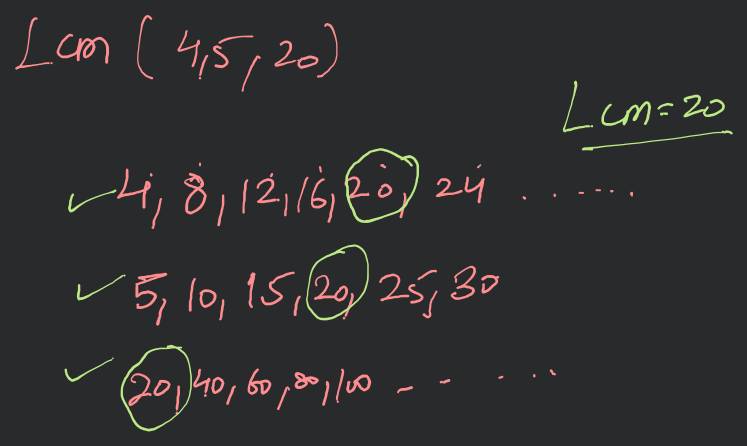 Lcm ( 4,5, 20)
Lcm=20
4, 8, 12, 16, 20, 24 . . . . . . .
5, 10, 15, 20, 25, 30
20, 40, 60, 80, 100 - - . . . .